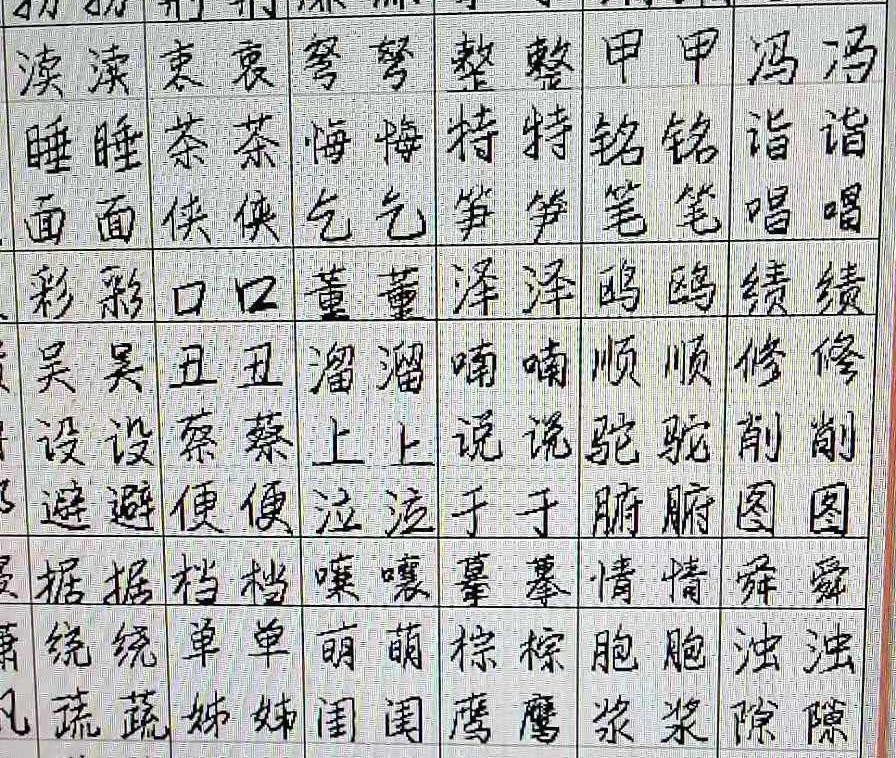 渎渎衷衷弩弩整整甲甲冯冯
睡睡茶茶悔悔特特铭铭诣诣
面面侠侠乞乞笋笋笔笔唱唱
彩彩口口董董泽泽鸥鸥绩绩
吴吴丑丑溜溜喃喃顺顺修修
设设蔡蔡上上说说驼驼削削
避避便便泣泣于于腑腑图图
据据档档嚷嚷摹摹情情舜舜
绕绕单单萌萌棕棕胞胞浊浊
蔬蔬姊姊闺闺鹰鹰浆浆隙隙